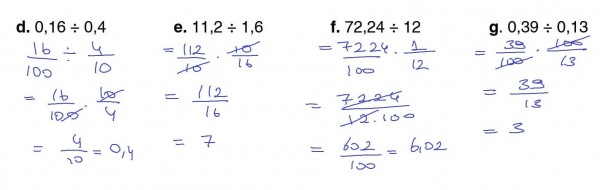 d. 0,16 ÷ 0,4
16/100 ÷ 4/10
= 16/100 · 10/4
= 4/10 = 0,4
e. 11,2 ÷ 1,6
= 112/10 · 10/16
= 112/16
= 7
f. 72,24 ÷ 12
= 7224/100 · 1/12
= 7224/12.100
= 602/100 = 6,02
g. 0,39 ÷ 0,13
= 39/100 · 100/13
= 39/13
= 3